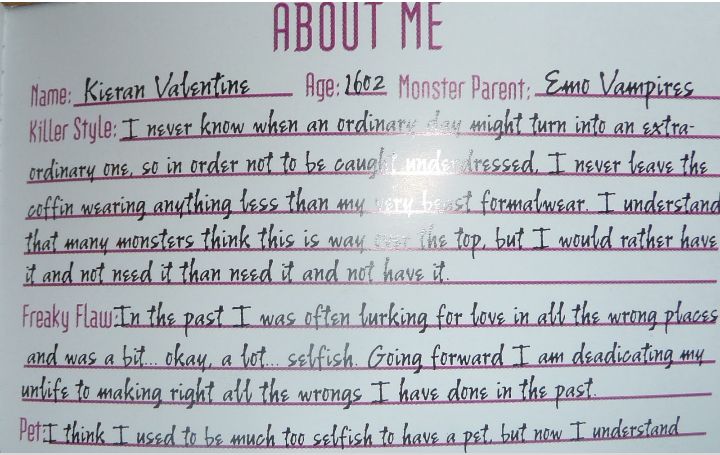 ABOUT ME
Name: Kieran Valentine Age: 1602 Monster Parent: Emo Vampires
Killer Style: I never know when an ordinary day might turn into an extra-
ordinary one, so in order not to be caught underdressed, I never leave the
coffin wearing anything less than my very beast formalwear. I understand
that many monsters think this is way over the top, but I would rather have
it and not need it than need it and not have it.
Freaky Flaw: In the past I was often lurking for love in all the wrong places
and was a bit... okay, a lot... selfish. Going forward I am deadicating my
unlife to making right all the wrongs I have done in the past.
Pet: I think I used to be much too selfish to have a pet, but now I understand